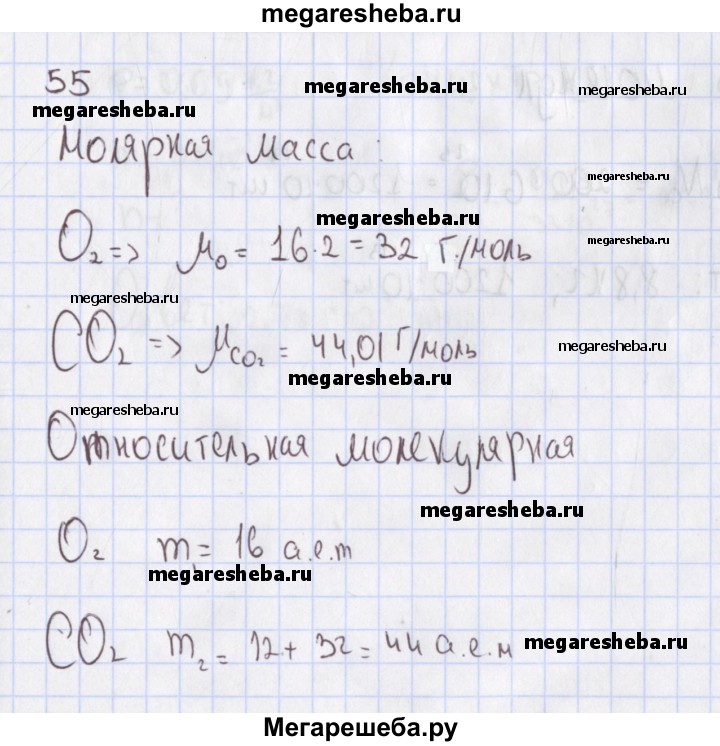 megaresheba.ru
55
megaresheba.ru
megaresheba.ru
megaresheba.ru
Молярная масса:
megaresheba.ru
megaresheba.ru
O₂ => μ₀ = 16·2 = 32 Г/моль
megaresheba.ru
megaresheba.ru
CO₂ => μCO₂ = 44,01 Г/моль
megaresheba.ru
megaresheba.ru
megaresheba.ru
Относительная молекулярная
megaresheba.ru
O₂ m = 16 а.е.m
megaresheba.ru
CO₂ m₂ = 12 + 32 = 44 а.е.м
megaresheba.ru
Мегарешеба.ру